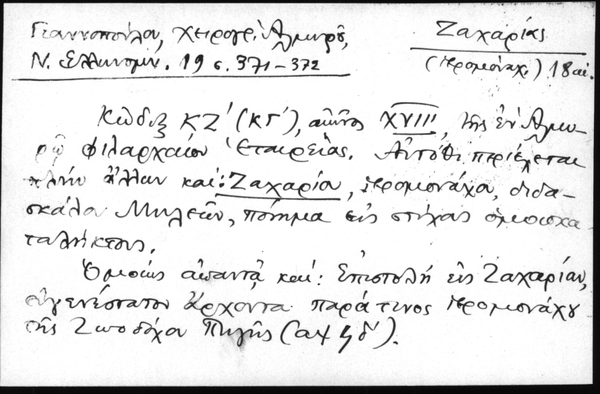 Γιαννοπούλου, Χειρόγρ. Αλμυροῦ,
Ν. Ελληνομν. 19 σ. 371-372
Ζαχαρίας
(ἱερομόναχ.) 18 αἰ.
Κῶδιξ ΚΖ΄ (ΚΓ΄), αἰῶνος XVIII, τῆς ἐν Αλμυ-
ρῷ φιλαρχαίου Ἑταιρείας. Αὐτόθι περιέχεται
πλὴν ἄλλων καί: Ζαχαρίου, ἱερομονάχου, διδα-
σκάλου Μηλεῶν, ποίημα εἰς στίχους ὁμοιοκα
ταλήκτους.
Ὁμοίως ἀπαντᾷ καί: Ἐπιστολή εἰς Ζαχαρίαν,
εὐγενέστατον ἄρχοντα παρά τινος ἱερομονάχου
τῆς Ζωοδόχου Πηγῆς (αψϟδ΄).